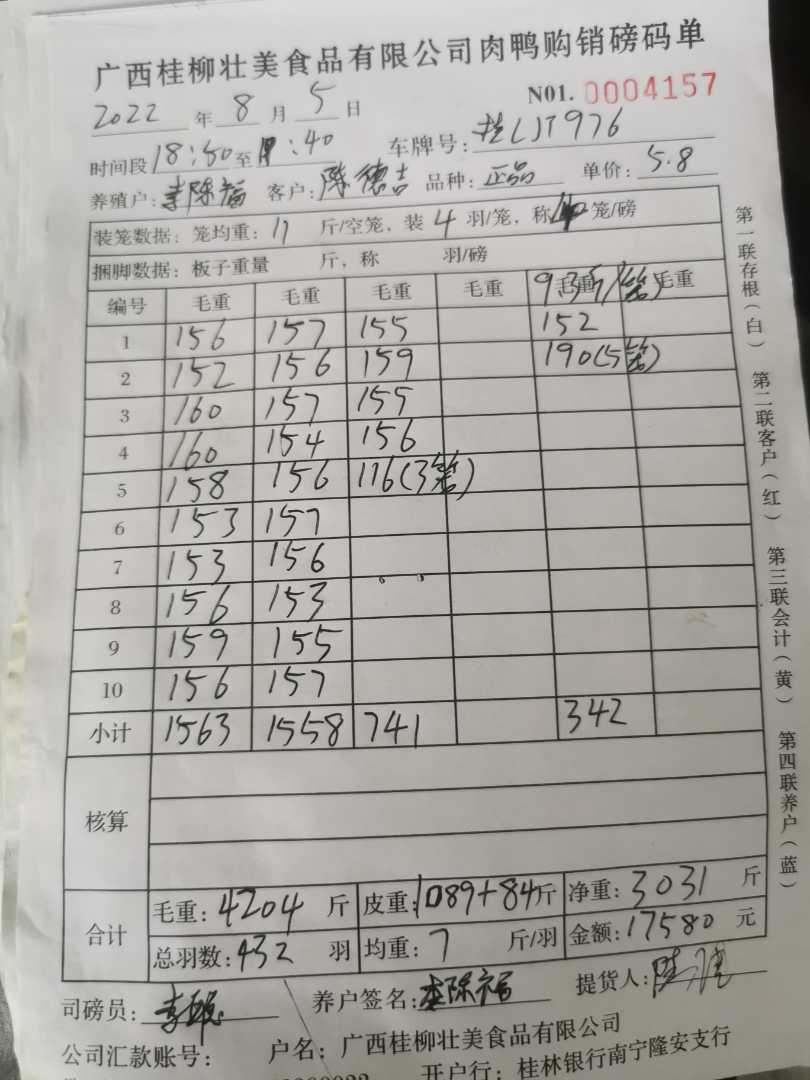 广西桂柳壮美食品有限公司肉鸭购销磅码单
2022 年 8 月 5 日 N01. 0004157
时间段 18:50 至 :40 车牌号: 桂LJT976
养殖户: 李陈福 客户: 陈德吉 品种: 正品 单价: 5.8
装笼数据: 笼均重: 11 斤/空笼, 装 4 羽/笼, 称 笼/磅
捆脚数据: 板子重量 斤, 称 羽/磅
编号 毛重 毛重 毛重 毛重 毛重 9.3斤/笼 毛重
1 156 157 155 152
2 152 156 159 190(5笼)
3 160 157 155
4 160 154 156
5 158 156 116(3笼)
6 153 157
7 153 156
8 156 153
9 159 155
10 156 157
小计 1563 1558 741 342
核算
合计 毛重: 4204 斤 皮重: 1089+84 斤 净重: 3031 斤
总羽数: 432 羽 均重: 7 斤/羽 金额: 17580 元
司磅员: 李 养户签名: 李陈福 提货人: 陈
公司汇款账号: 户名: 广西桂柳壮美食品有限公司
开户行: 桂林银行南宁隆安支行
第一联存根(白) 第二联客户(红) 第三联会计(黄) 第四联养户(蓝)